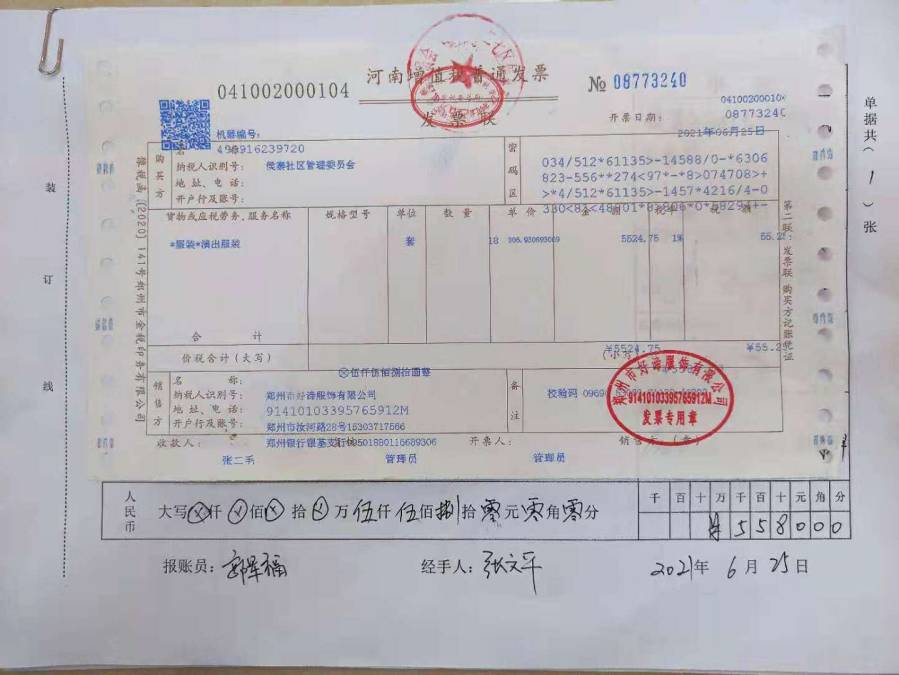 041002000104
河南增值税普通发票
№ 08773240
发票联
04100200010
08773240
开票日期：
2021年06月25日
机器编号：
499916239720
购买方
名 称：
侯寨社区管理委员会
纳税人识别号：
地 址、电 话：
开户行及账号：
密码区
034/512*61135>-14588/0-*6306
823-556**274<97*-*8>074708>+
>*4/512*61135>-1457*4216/4-0
货物或应税劳务、服务名称 规格型号 单位 数 量 单 价 金 额 税率 税 额
*服装*演出服装 套 18 5524.75 1% 55.2
合 计 ¥5524.75 ¥55.2
价税合计（大写） ⊗伍仟伍佰捌拾圆整 （小写）
销售方
名 称：
郑州市好涛服饰有限公司
纳税人识别号：
91410103395765912M
地 址、电 话：
郑州市汝河路28号15303717566
开户行及账号：
备注
校验码
收款人： 开票人： 销售方：（章）
张二毛 管理员 管理员
郑州市好涛服饰有限公司
91410103395765912M
发票专用章
第二联：发票联 购买方记账凭证
单据共（ 1 ）张
装
订
线
人民币
大写⊗仟⊗佰⊗拾⊗万伍仟伍佰捌拾零元零角零分
千 百 十 万 千 百 十 元 角 分
¥ 5 5 8 0 0 0
报账员： 经手人：张文平 2021年 6月 25日